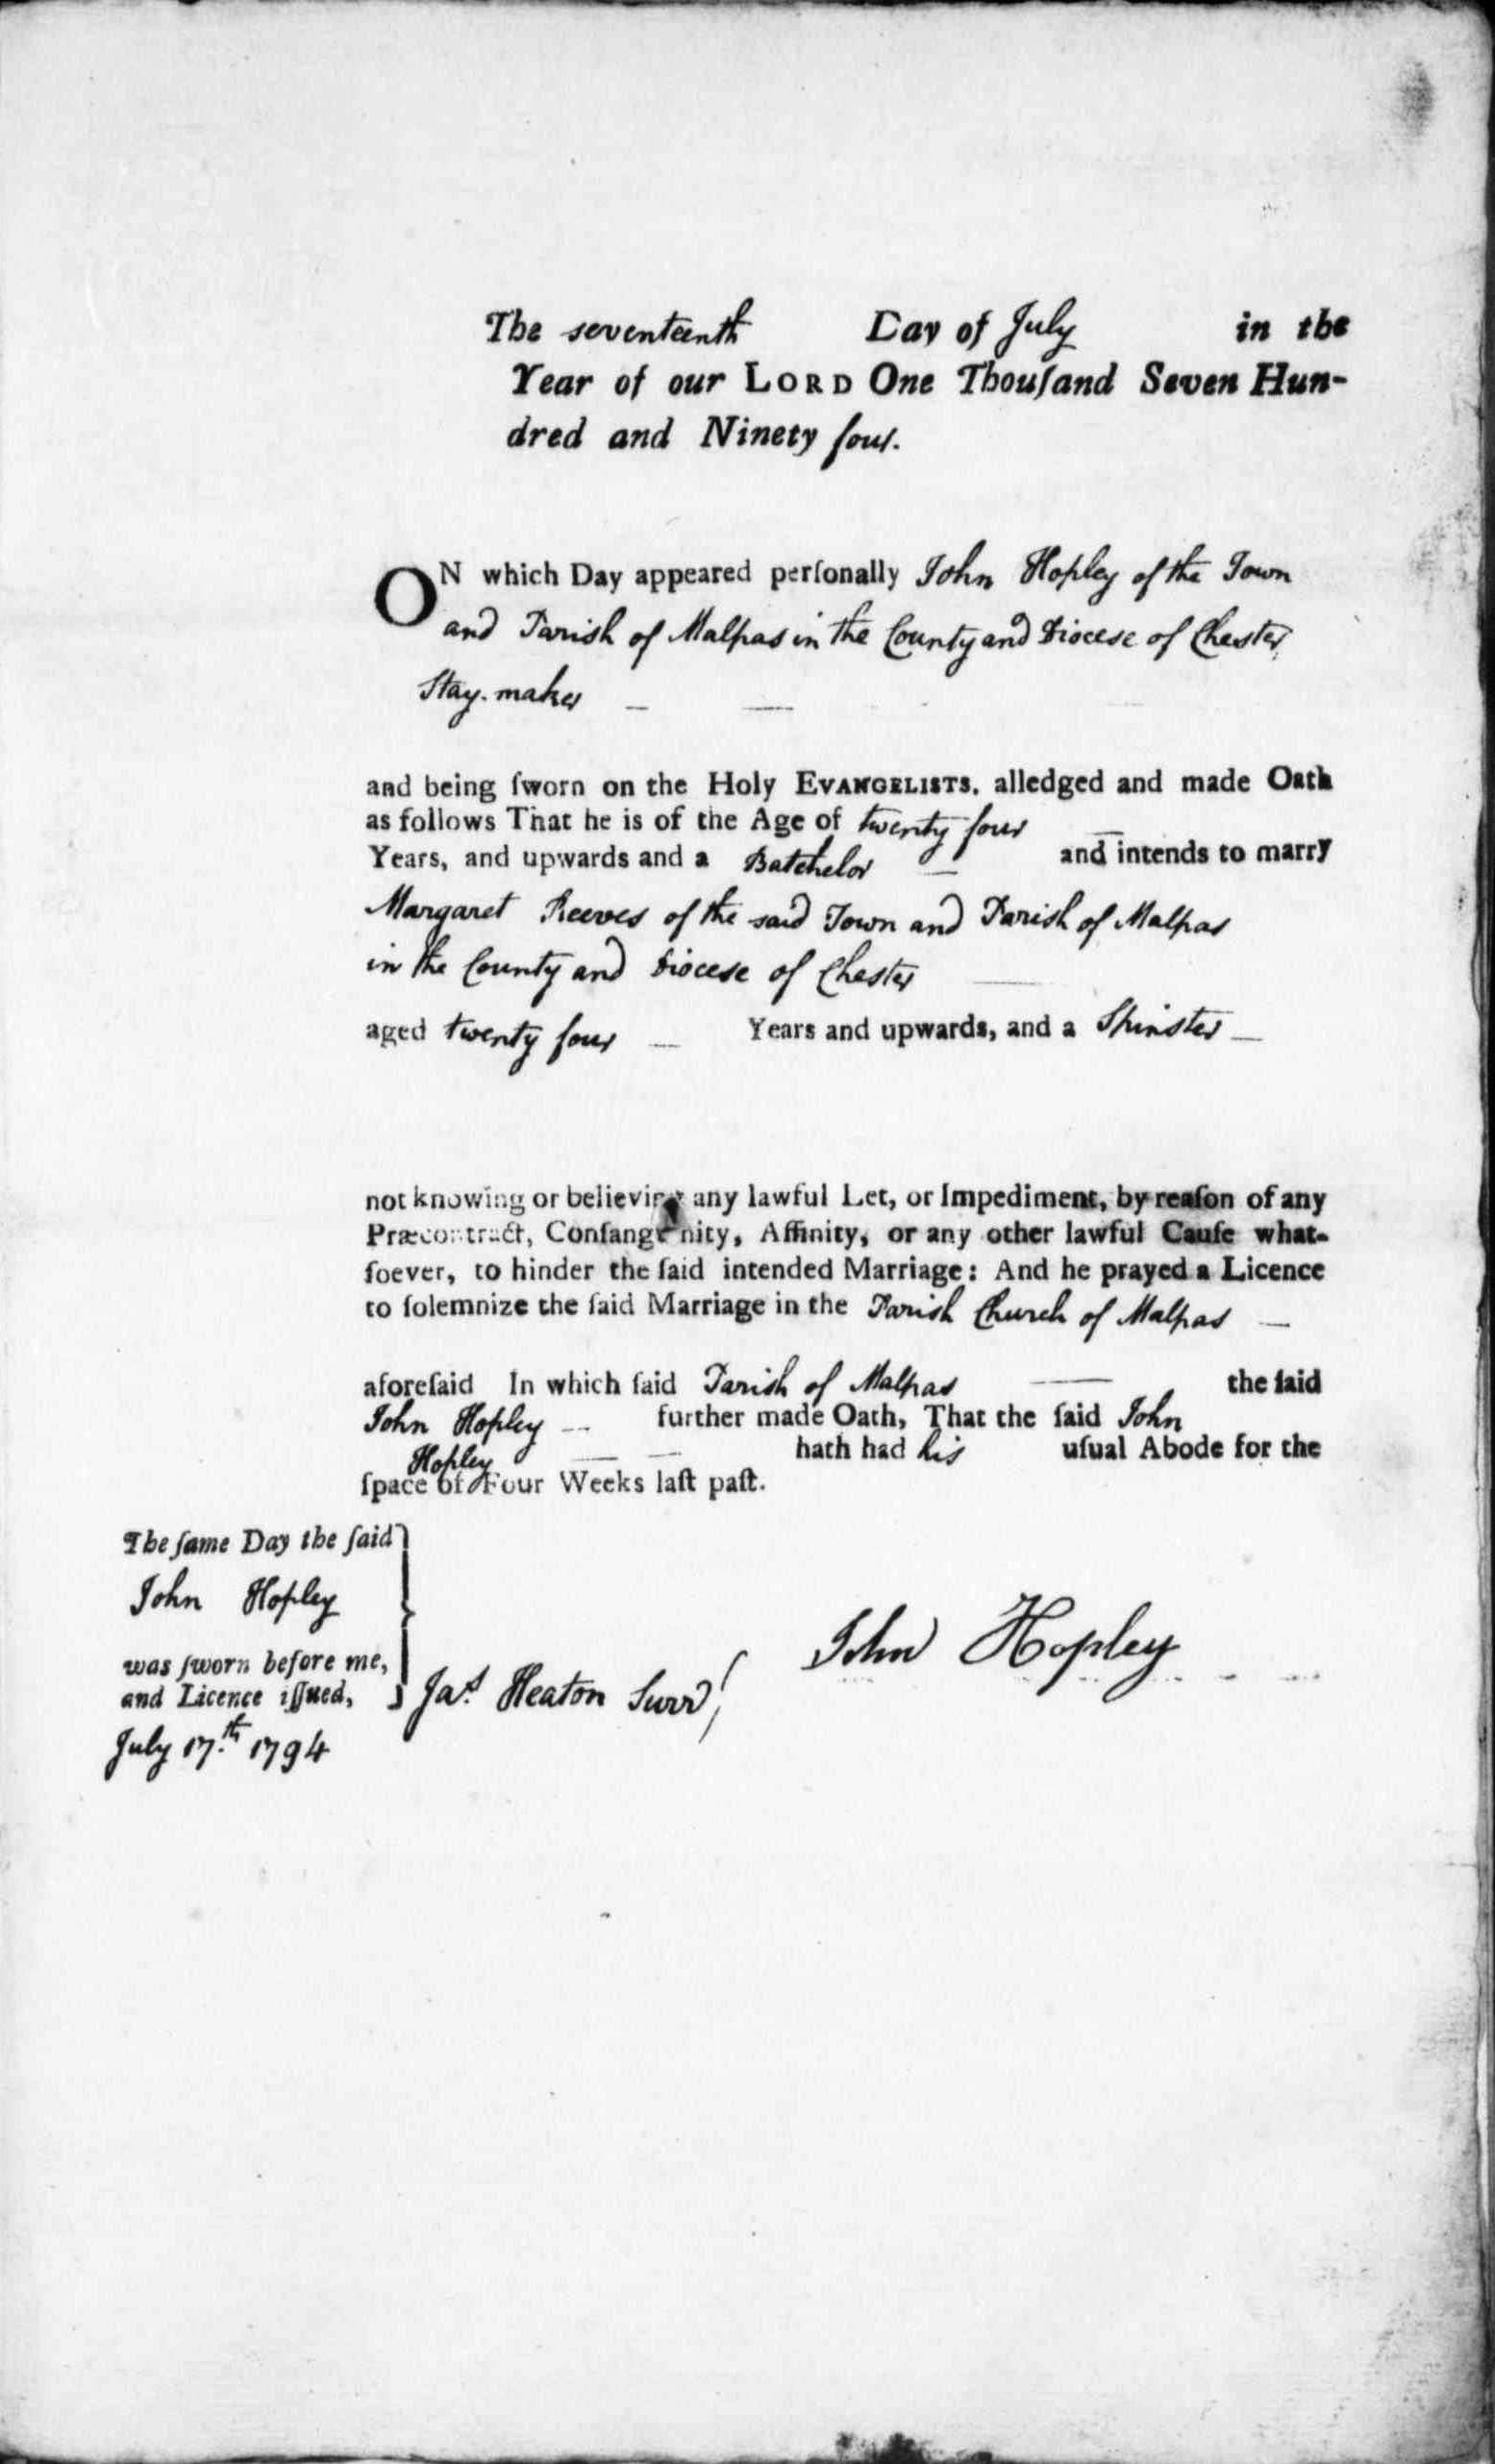 The seventeenth Day of July in the
Year of our LORD One Thouſand Seven Hun-
dred and Ninety four.
ON which Day appeared perſonally John Hopley of the Town
and Parish of Malpas in the County and Diocese of Chester
Stay-maker — —
and being ſworn on the Holy EVANGELISTS, alledged and made Oath
as follows That he is of the Age of twenty four —
Years, and upwards and a Batchelor — and intends to marry
Margaret Reeves of the said Town and Parish of Malpas
in the County and Diocese of Chester —
aged twenty four — Years and upwards, and a Spinster —
not knowing or believing any lawful Let, or Impediment, by reaſon of any
Præcontract, Conſanguinity, Affinity, or any other lawful Cauſe what-
ſoever, to hinder the ſaid intended Marriage: And he prayed a Licence
to ſolemnize the ſaid Marriage in the Parish Church of Malpas —
aforeſaid In which ſaid Parish of Malpas — the ſaid
John Hopley — further made Oath, That the ſaid John
Hopley — — hath had his uſual Abode for the
ſpace of Four Weeks laſt paſt.
The ſame Day the ſaid
John Hopley
was ſworn before me,
and Licence iſſued,
July 17.th 1794
Jas. Heaton Surr
John Hopley